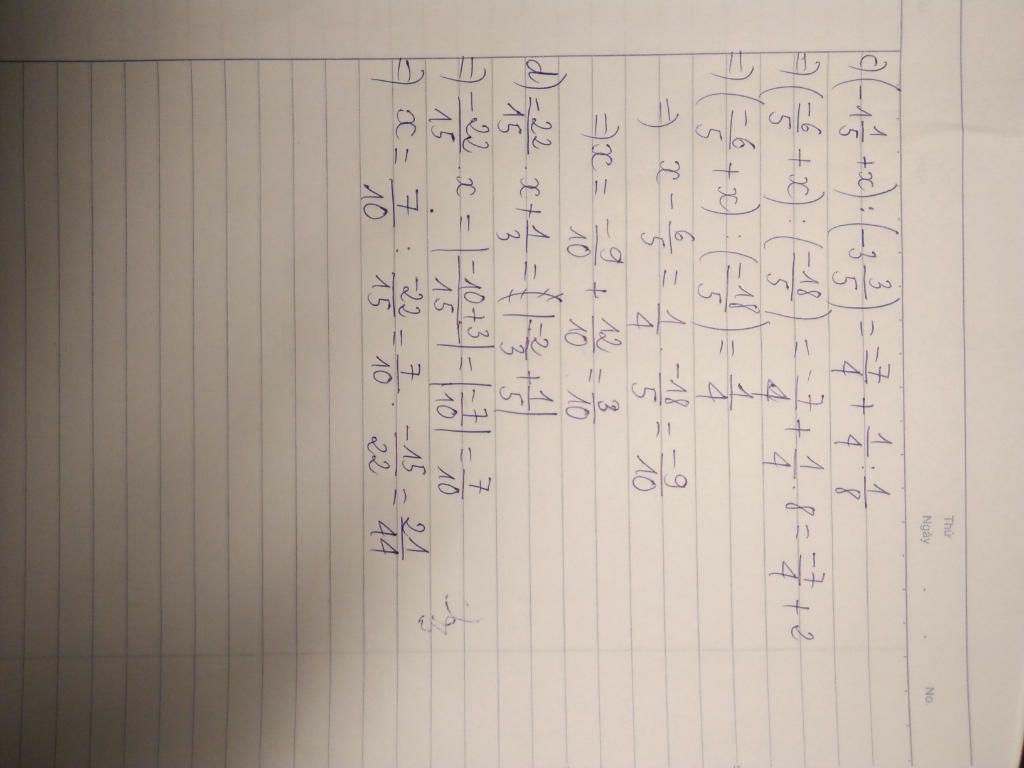 Thứ
Ngày . . No.
c) (-1 1/5 + x) : (-3 3/5) = -7/4 + 1/4 : 1/8
=) (-6/5 + x) : (-18/5) = -7/4 + 1/4 . 8 = -7/4 + 2
=) (-6/5 + x) : (-18/5) = 1/4
=) x - 6/5 = 1/4 . -18/5 = -9/10
=) x = -9/10 + 12/10 = 3/10
d) -22/15 . x + 1/3 = |-2/3 + 1/5|
=) -22/15 . x = |-10+3/15| = |-7/10| = 7/10
=) x = 7/10 : -22/15 = 7/10 . -15/22 = 21/44